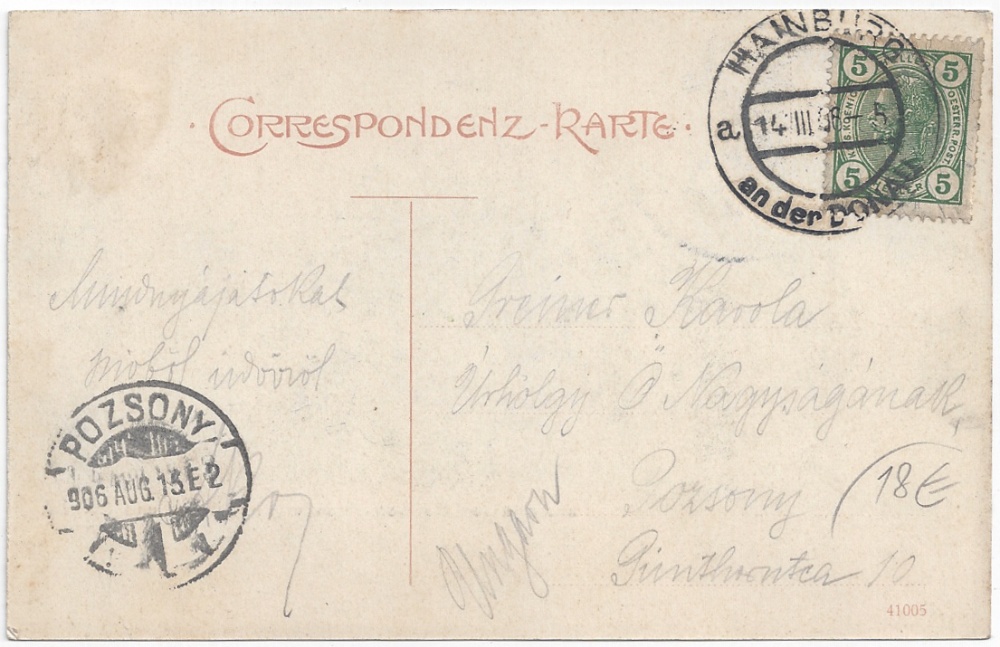 HAINBURG
a 14 III 06 – 5
an der DONAU
5 5
5 5
· CORRESPONDENZ-KARTE ·
Mindnyájatokat
szivből üdvözöl
POZSONY
906 AUG. 15. E 2
Greiner Karola
Úrhölgy Ő Nagyságának
Pozsony
10
Ungarn
18€
41005